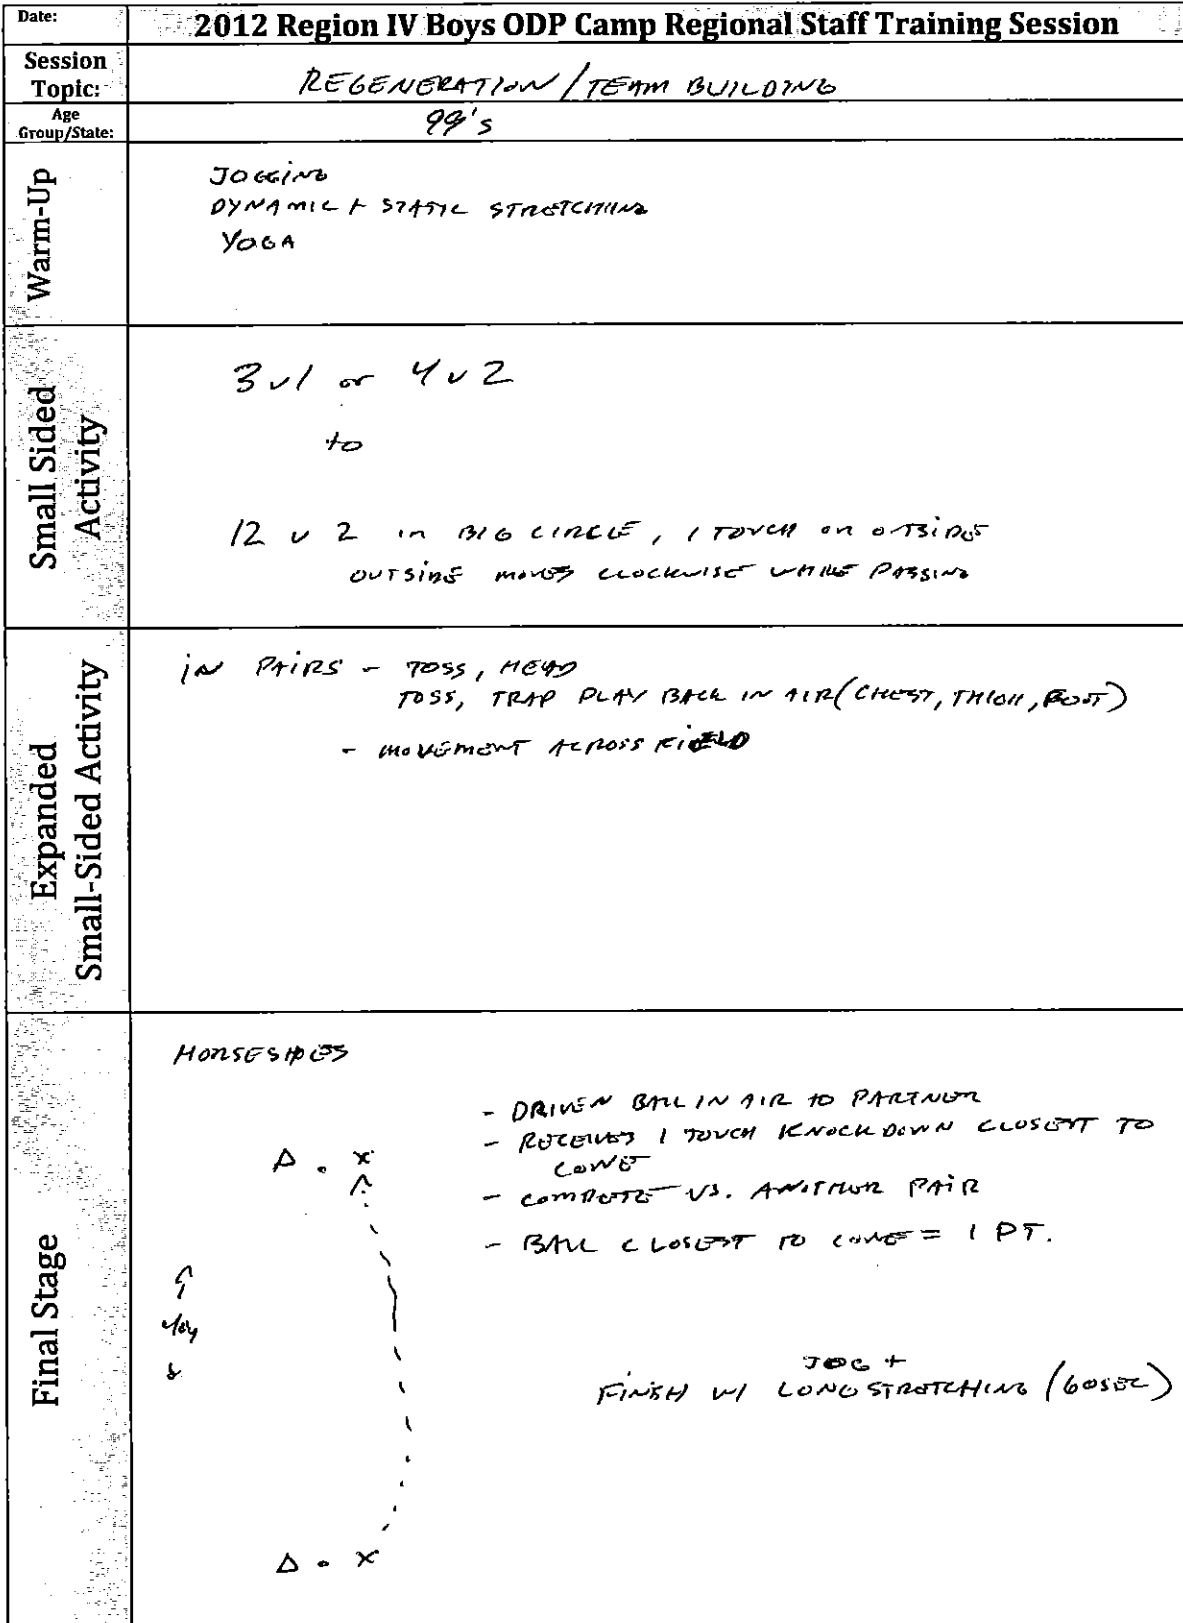 Date:
2012 Region IV Boys ODP Camp Regional Staff Training Session
Session
Topic:
REGENERATION / TEAM BUILDING
Age
Group/State:
99's
Warm-Up
JOGGING
DYNAMIC + STATIC STRETCHING
YOGA
Small Sided
Activity
3v1 or 4v2
to
12 v 2 in BIG CIRCLE, 1 TOUCH on OTSIDE
OUTSIDE MOVES CLOCKWISE WHILE PASSING
Expanded
Small-Sided Activity
IN PAIRS - TOSS, HEAD
TOSS, TRAP PLAY BACK IN AIR (CHEST, THIGH, FOOT)
- MOVEMENT ACROSS FIELD
Final Stage
HORSESHOES
- DRIVEN BALL IN AIR TO PARTNER
- RECEIVES 1 TOUCH KNOCK DOWN CLOSEST TO
CONE
- COMPETE VS. ANOTHER PAIR
- BALL CLOSEST TO CONE = 1 PT.
x
JOG +
FINISH W/ LONG STRETCHING (60SEC)
x